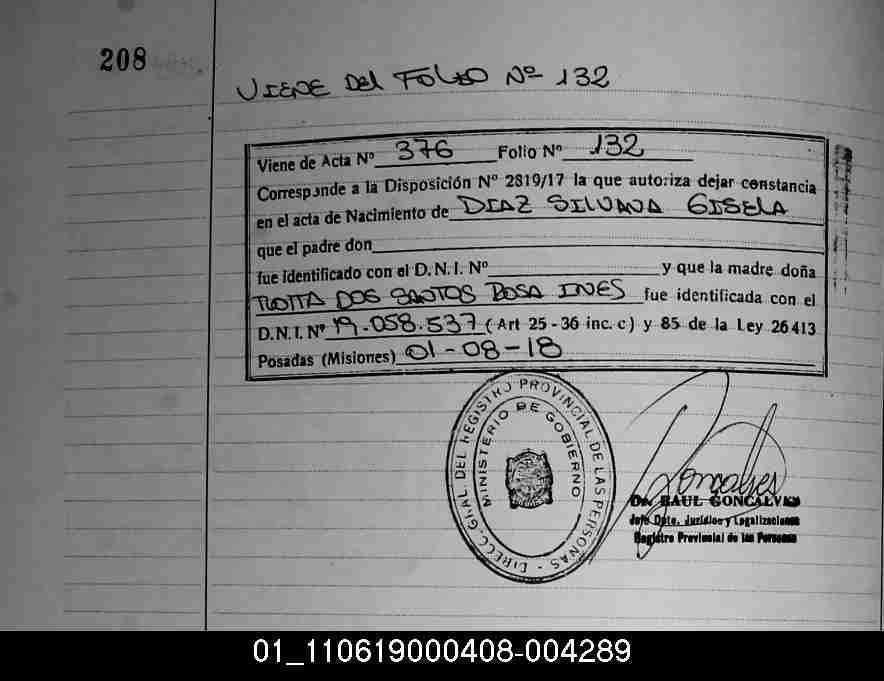 208
VIENE DEL FOLIO Nº 132
Viene de Acta Nº 376 Folio Nº 132
Corresponde a la Disposición Nº 2819/17 la que autoriza dejar constancia
en el acta de Nacimiento de DIAZ SILVANA GISELA
que el padre don
fue identificado con el D.N.I. Nº y que la madre doña
TROTTA DOS SANTOS ROSA INES fue identificada con el
D.N.I. Nº 19.058.537 (Art 25-36 inc. c) y 85 de la Ley 26413
Posadas (Misiones) 01-08-18
DIREC. GRAL. DEL REGISTRO PROVINCIAL DE LAS PERSONAS - MNES.
MINISTERIO DE GOBIERNO
Goncalves
Dr. RAUL GONCALVES
Jefe Dpto. Jurídico y Legalizaciones
Registro Provincial de las Personas
01_110619000408-004289